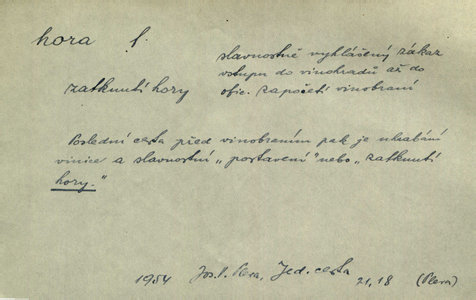 hora f.
slavnostně vyhlášený zákaz
vstupu do vinohradů až do
ofic. započetí vinobraní
zatknutí hory
Poslední cesta před vinobraním pak je uhrabání
vinice a slavnostní „postavení" nebo „zatknutí
hory."
1954 Jos. Š. Pera, Jed. cesta 21, 18 (Pera)